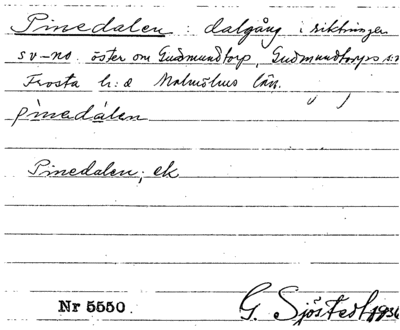 Pinedalen: dalgång i riktningen
sv–no öster om Gudmundtorp, Gudmundtorps s:n
Frosta h:d Malmöhus län.
pinedalen
Pinedalen; ek
Nr 5550. G. Sjöstedt 1936